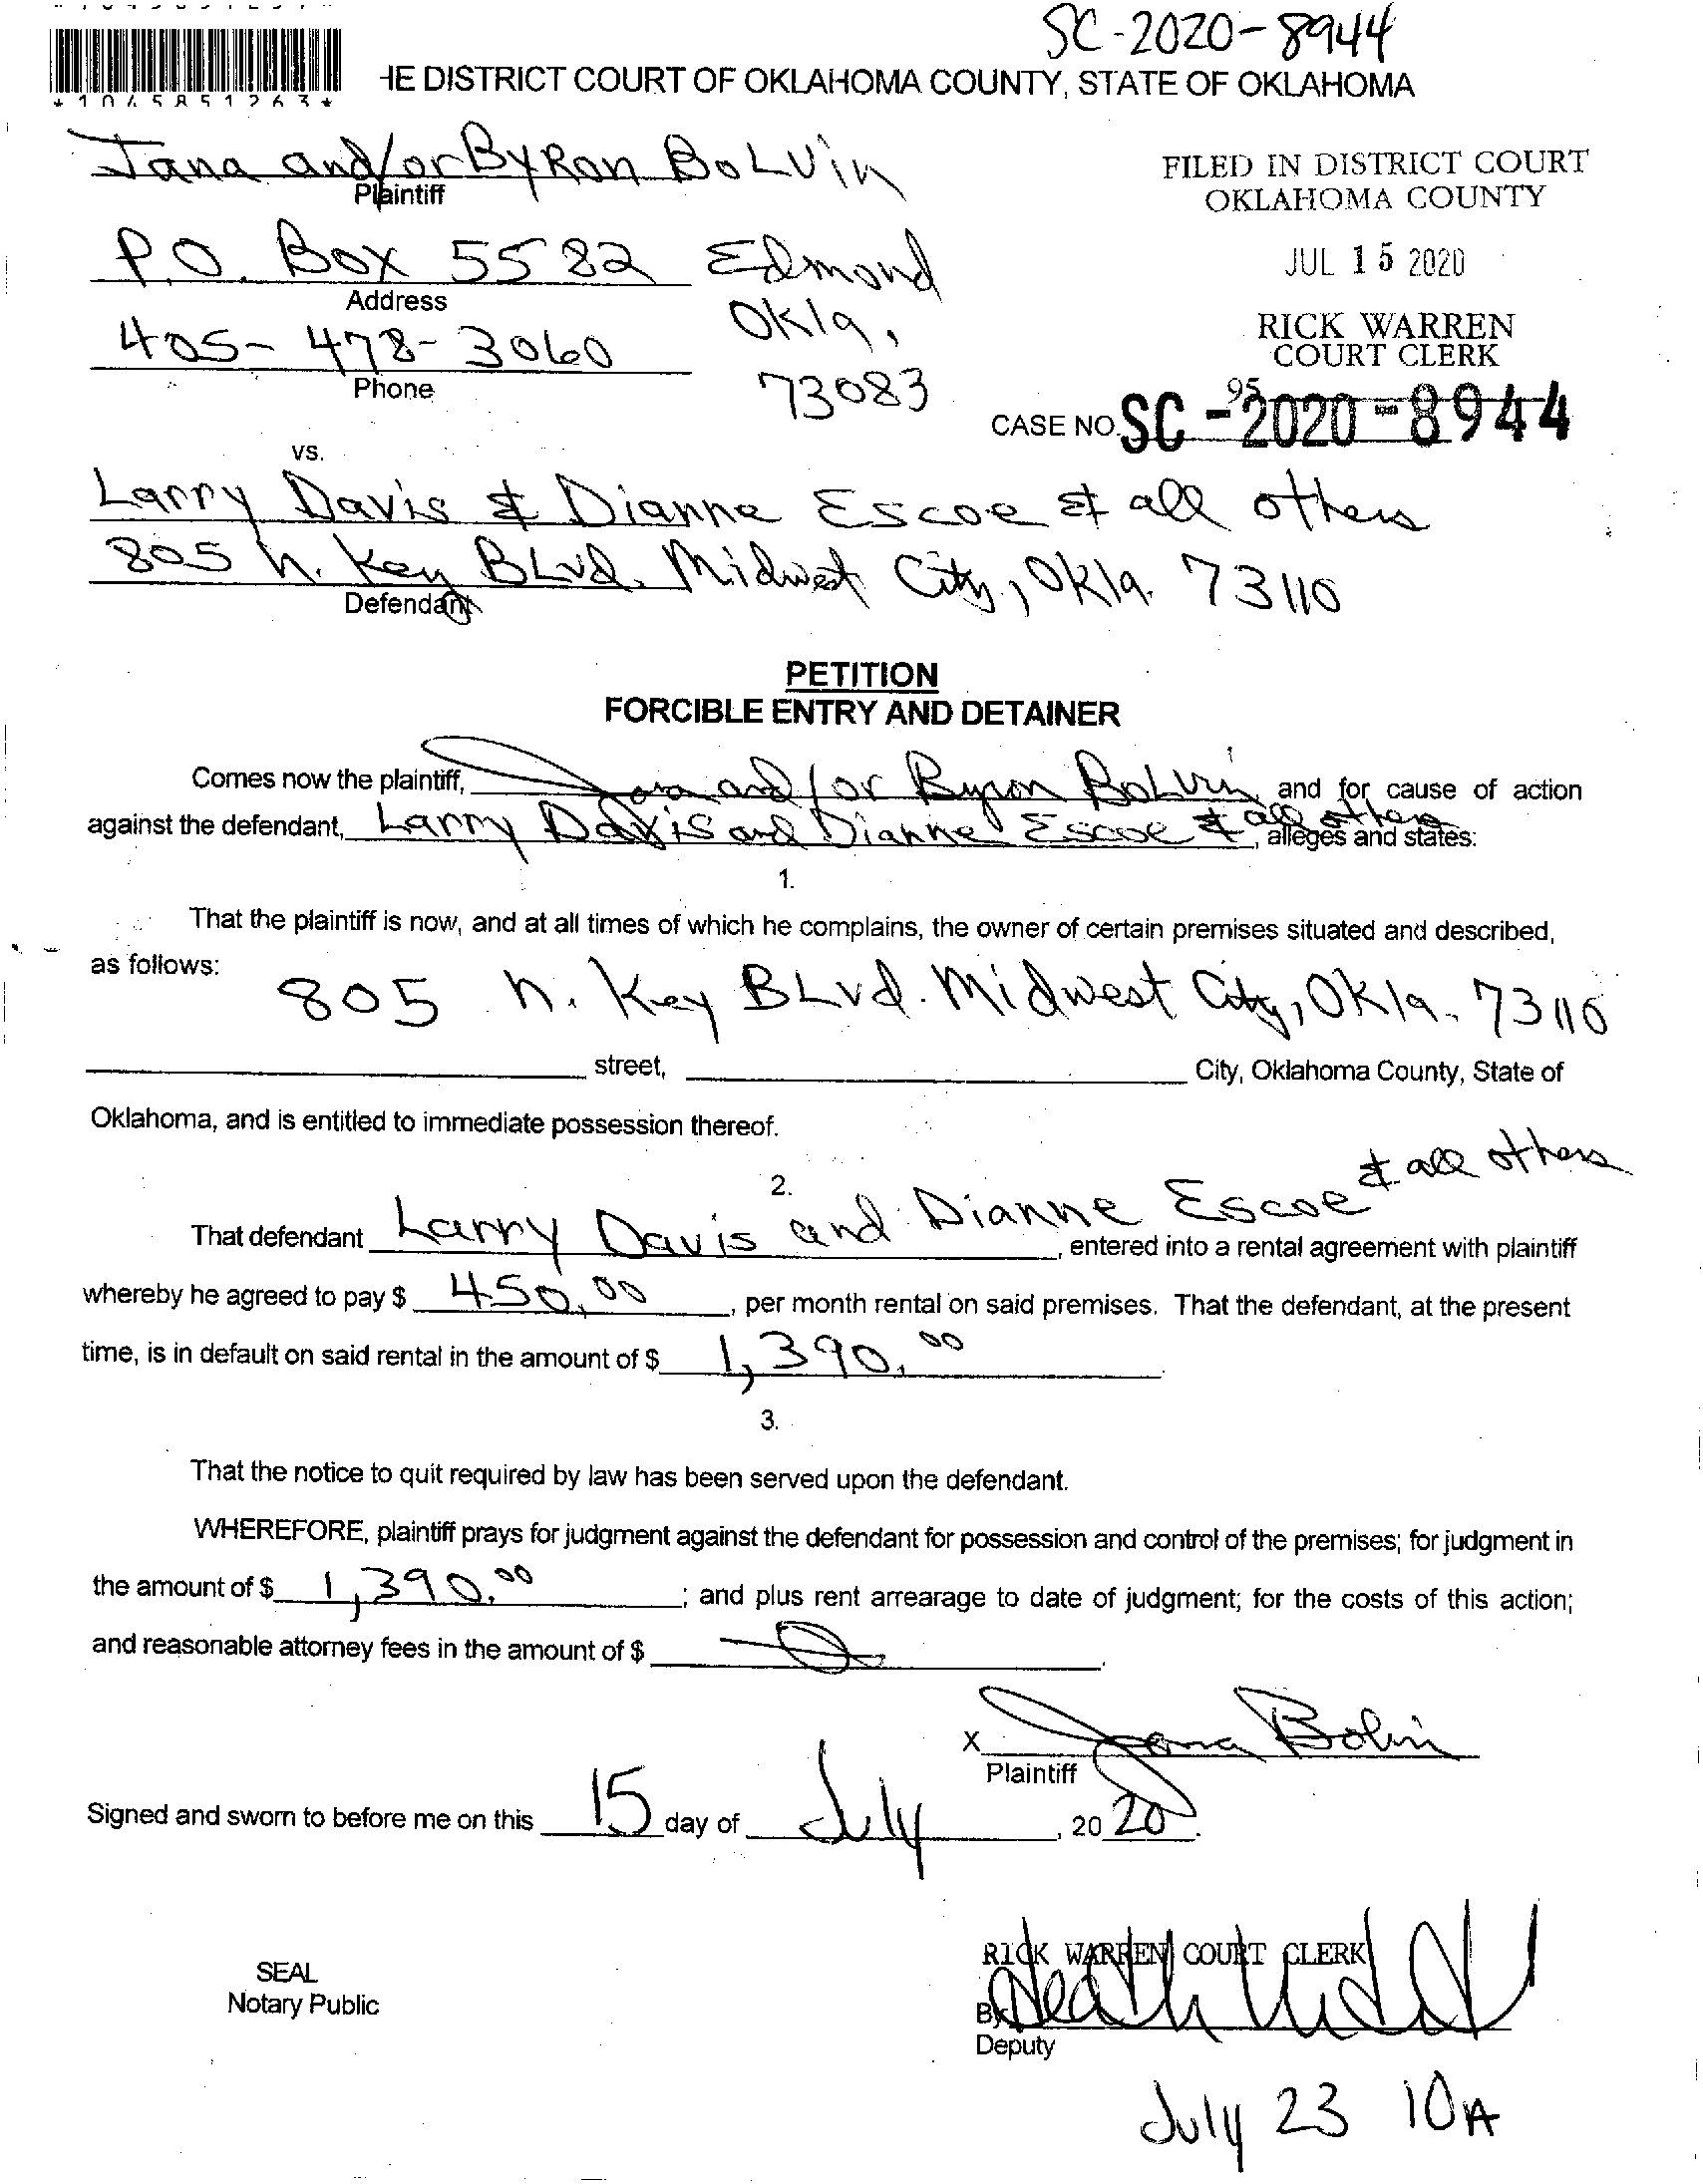 SC-2020-8944
*1045851263*
HE DISTRICT COURT OF OKLAHOMA COUNTY, STATE OF OKLAHOMA
Jana and/or Byron Bolvin
Plaintiff
FILED IN DISTRICT COURT
OKLAHOMA COUNTY
P.O. Box 5582 Edmond
Okla,
73083
Address
JUL 15 2020
405-478-3060
Phone
RICK WARREN
COURT CLERK
95
CASE NO. SC-2020-8944
vs.
Larry Davis & Dianne Escoe & all others
805 N. Key BLvd. Midwest City, Okla. 73110
Defendant
PETITION
FORCIBLE ENTRY AND DETAINER
Comes now the plaintiff, Jana and/or Byron Bolvin and for cause of action
against the defendant, Larry Davis and Dianne Escoe & all others, alleges and states:
1.
That the plaintiff is now, and at all times of which he complains, the owner of certain premises situated and described,
as follows:
805 N. Key BLvd. Midwest City, Okla. 73110
street, City, Oklahoma County, State of
Oklahoma, and is entitled to immediate possession thereof.
2.
That defendant Larry Davis and Dianne Escoe & all others, entered into a rental agreement with plaintiff
whereby he agreed to pay $ 450.00, per month rental on said premises. That the defendant, at the present
time, is in default on said rental in the amount of $ 1,390.00.
3.
That the notice to quit required by law has been served upon the defendant.
WHEREFORE, plaintiff prays for judgment against the defendant for possession and control of the premises; for judgment in
the amount of $ 1,390.00; and plus rent arrearage to date of judgment; for the costs of this action;
and reasonable attorney fees in the amount of $
X Jana Bolvin
Plaintiff
Signed and sworn to before me on this 15 day of July, 2020.
SEAL
Notary Public
RICK WARREN COURT CLERK
By
Deputy
July 23 10A